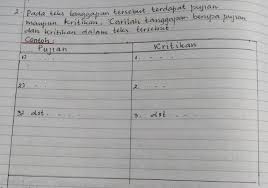 2. Pada teks tanggapan tersebut terdapat pujian
maupun kritikan. Carilah tanggapan berupa pujian
dan kritikan dalam teks tersebut
Contoh:
Pujian Kritikan
1) . . . . 1. . . . .
2) . . . . 2. . . . .
3) dst. . . . 3. dst. . . .